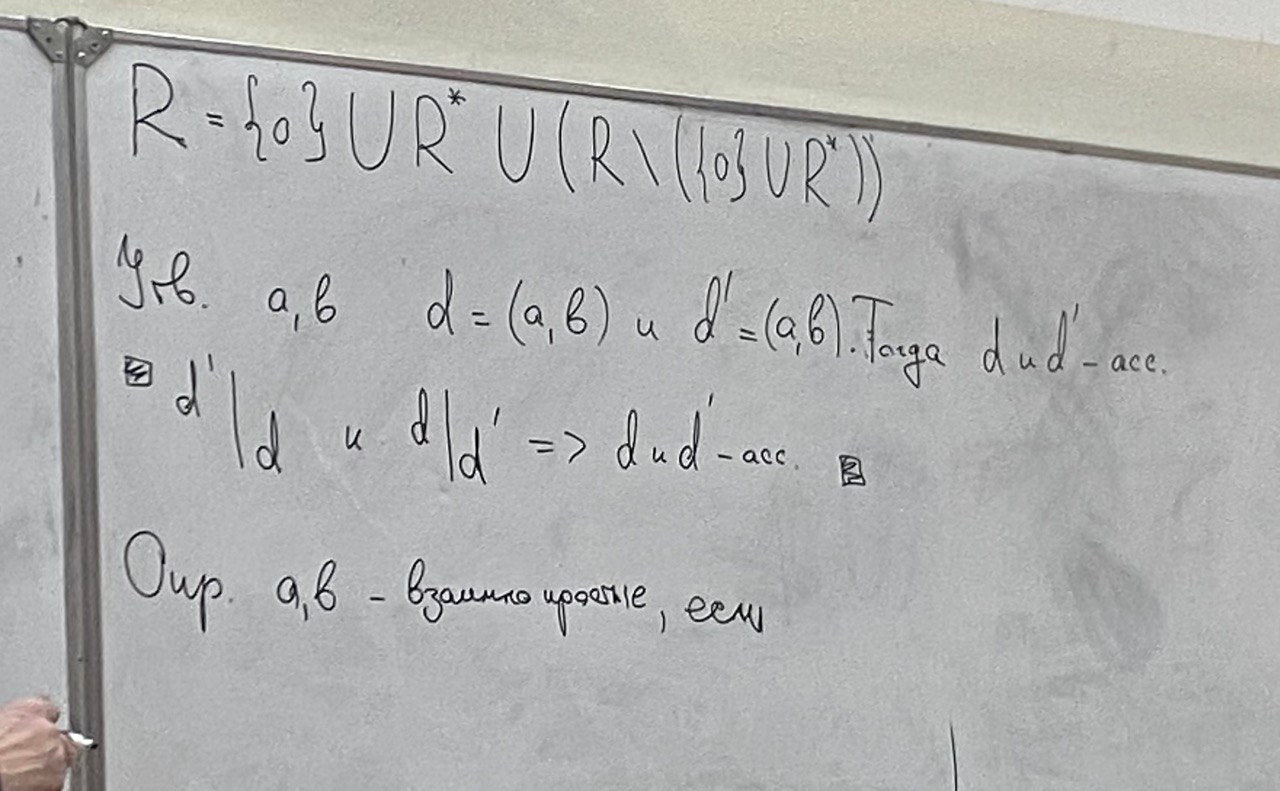 R = {0} ∪ R* ∪ (R \ ({0} ∪ R*))
Утв. a, b d = (a, b) и d' = (a, b). Тогда d и d' - асс.
d' | d и d | d' => d и d' - асс.
Опр. a, b - взаимно простые, если